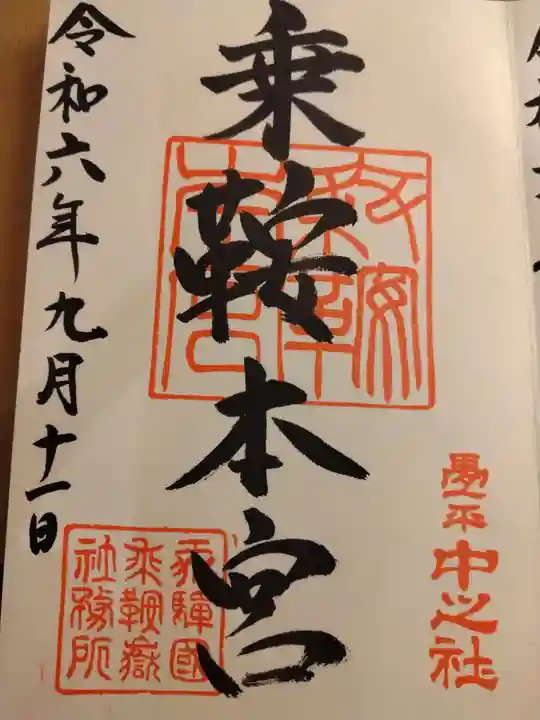 畳平中之社
乗鞍本宮
飛騨國
乗鞍嶽
社務所
令和六年九月十一日